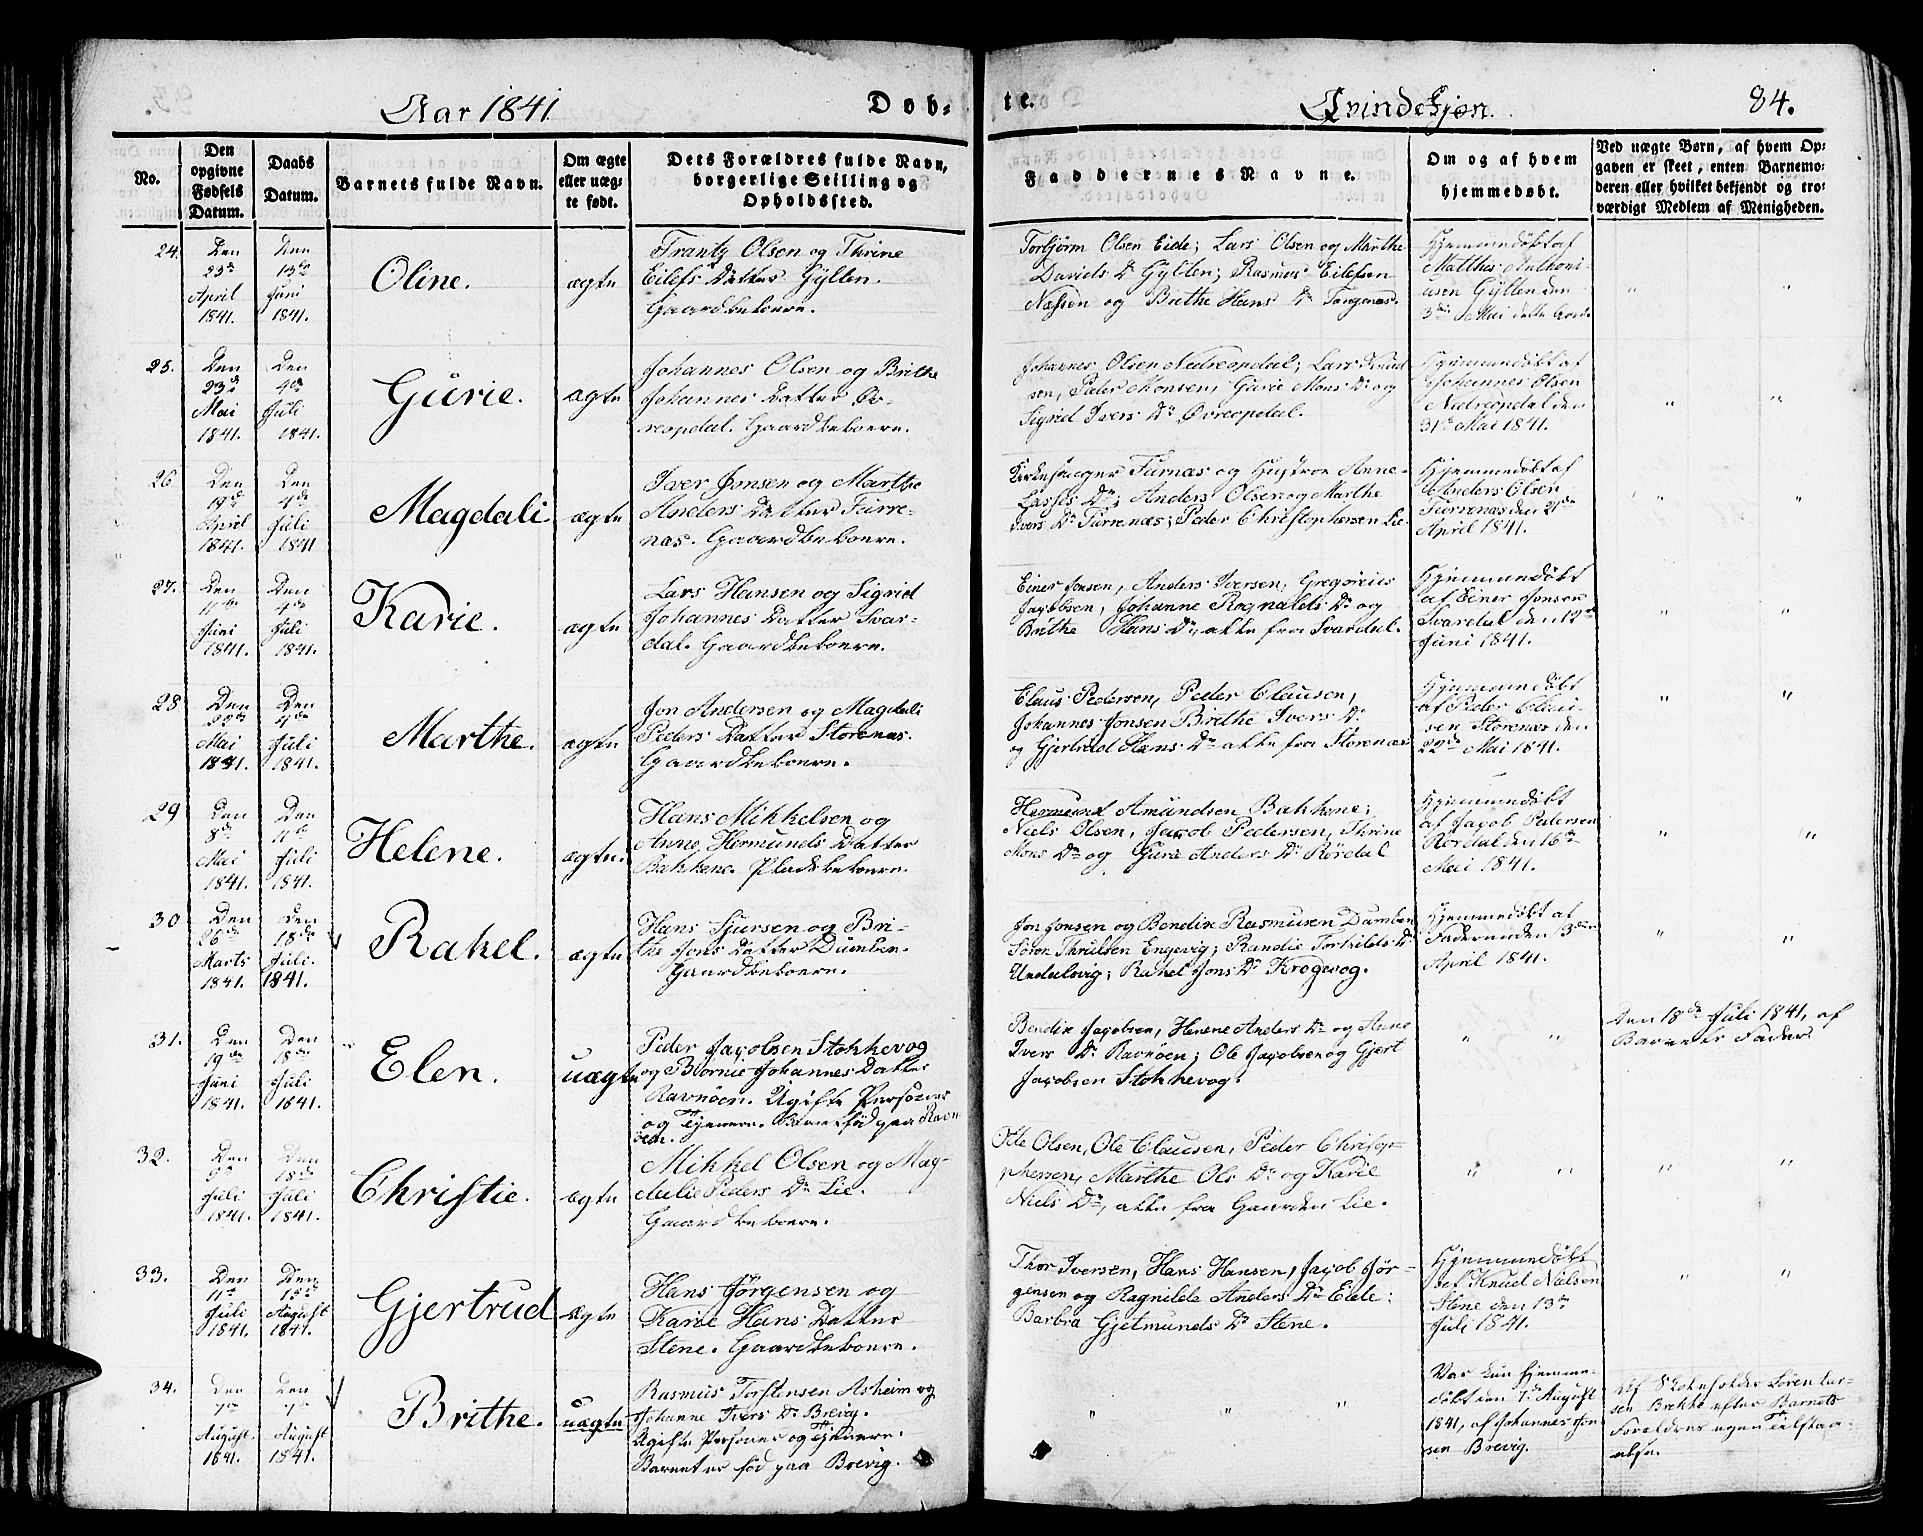 Aar 1841
Døb-
te.
Qvindekjøn.
84.
No.
Den opgivne Fødsels Datum.
Daabs Datum.
Barnets fulde Navn.
Om ægte eller uæg-
te født.
Dets Forældres fulde Navn,
borgerlige Stilling og
Opholdssted.
Faddernes Navne.
Om og af hvem
hjemmedøbt.
Ved uægte Børn, af hvem Op-
gaven er skeet, enten Barnemo-
deren eller hvilket bekjendt og tro-
værdigt Medlem af Menigheden.
24.
Den
23de
April
1841.
Den
13de
Juni
1841.
Oline.
ægte
Frantz Olsen og Thrine
Eilefs Datter Gylten.
Gaardbeboere.
Torbjørn Olsen Eide; Lars Olsen og Marthe
Davids Dr Gylten; Rasmus Eilefsen
Næssen og Brithe Hans Dr Tangenæs.
Hjemmedøbt af
Matthes Anthoni-
usen Gylten den
3die Mai dette Aar.
" "
25.
Den
23de
Mai
1841.
Den
4de
Juli
1841.
Gurie.
ægte
Johannes Olsen og Brithe
Johannes Datter Øv-
reopdal. Gaardbeboere.
Johannes Olsen Nedreopdal; Lars Knud
sen, Peder Monsen, Gurie Mons Dr og
Sigrid Ivers Dr Øvreopdal.
Hjemmedøbt af
Johannes Olsen
Nedreopdal den
31te Mai 1841.
" "
26
Den
19de
April
1841.
Den
4de
Juli
1841
Magdali
ægte
Iver Jonsen og Marthe
Anders Datter Furre-
næs. Gaardbeboere.
Kirkesanger Furnæs og Hustroe Anne
Lasses Dr; Anders Olsen og Marthe
Ivers Dr Furrenæs; Peder Christophersen Lie
Hjemmedøbt af
Anders Olsen
Furrenæs den 21de
April 1841.
" "
27.
Den
11te
Juni
1841.
Den
4de
Juli
1841.
Karie.
ægte
Lars Hansen og Sigrid
Johannes Datter Svar-
dal. Gaardbeboere.
Einer Jonsen, Anders Iversen, Gregorius
Jacobsen, Johanne Rognalds Dr og
Brithe Hans Dr, alle fra Svardal.
Hjemmedøbt
af Einer Jonsen
Svardal den 12te
Juni 1841.
" "
28
Den
22de
Mai
1841.
Den
4de
Juli
1841.
Marthe.
ægte
Jon Andersen og Magdali
Peders Datter Storenæs.
Gaardbeboere.
Claus Pedersen, Peder Clausen,
Johannes Jonsen Brithe Ivers Dr
og Gjertrud Hans Dr alle fra Storenæs
Hjemmedøbt
af Peder Clau-
sen Storenæs den
22de Mai 1841.
" "
29
Den
8de
Mai
1841.
Den
11te
Juli
1841.
Helene.
ægte.
Hans Mikkelsen og
Anne Hermunds Datter
Bakkene. Pladsbeboere.
Hermund Amundsen Bakkene;
Niels Olsen, Jacob Pedersen, Thrine
Mons Dr og Guri Anders Dr Rørdal
Hjemmedøbt
af Jacob Pedersen
Rørdal den 16de
Mai 1841.
" "
30
Den
26de
Marts
1841.
Den
18de
Juli.
1841.
Rakel.
ægte
Hans Sjursen og Bri-
the Jons Datter Dumben.
Gaardbeboere.
Jon Jonsen og Bendix Rasmusen Dumben
Søren Thrulsen Engevig; Randie Torkilds Dr
Undalsvig; Rakel Jons Dr Krogevog.
Hjemmedøbt af
Faderen den 3die
April 1841.
" "
31.
Den
19de
Juni
1841.
Den
18de
Juli
1841.
Elen.
uægte
Peder Jacobsen Stokkevog
og Børnie Johannes Datter
Ravnøen. Ugifte Personer
og Tjenere. Barnet fød paa Ravn
øen.
Bendix Jacobsen, Helene Anders Dr og Anne
Ivers Dr Ravnøen; Ole Jacobsen og Gjert
Jacobsen Stokkevog.
" "
Den 18de Juli 1841, af
Barnets Fader.
32.
Den
9de
Juli
1841.
Den
18de
Juli
1841.
Christie.
ægte
Mikkel Olsen og Mag-
delie Peders Dr Lie.
Gaardbeboere.
Ole Olsen, Ole Clausen, Peder Christop-
phersen, Marthe Ols Dr og Karie
Niels Dr, alle fra Gaarden Lie.
" "
" "
33.
Den
11te
Juli
1841.
Den
15de
August
1841.
Gjertrud
ægte
Hans Jørgensen og
Karie Hans Datter
Stene. Gaardbeboere.
Thor Iversen, Hans Hansen, Jacob Jør-
gensen og Ragnilde Anders Dr Eide;
Barbra Gjetmunds Dr Stene.
Hjemmedøbt
af Knud Nielsen
Stene den 13de
Juli 1841.
" "
34.
Den
7de
August.
1841.
Den
7de
August
1841.
Brithe.
uægte
Rasmus Torstensen Asheim og
Johanne Ivers Dr Brevig.
Ugifte Personer og Tjenere.
Barnet er fød paa Brevig.
" " "
Var kun hjemme-
døbt den 7de August
1841, af Johannes Jon
sen Brevig.
Af Skoleholder Sørenter-
sen Brekke efter Barnets
Foreldres egen Tilstaa-
else.